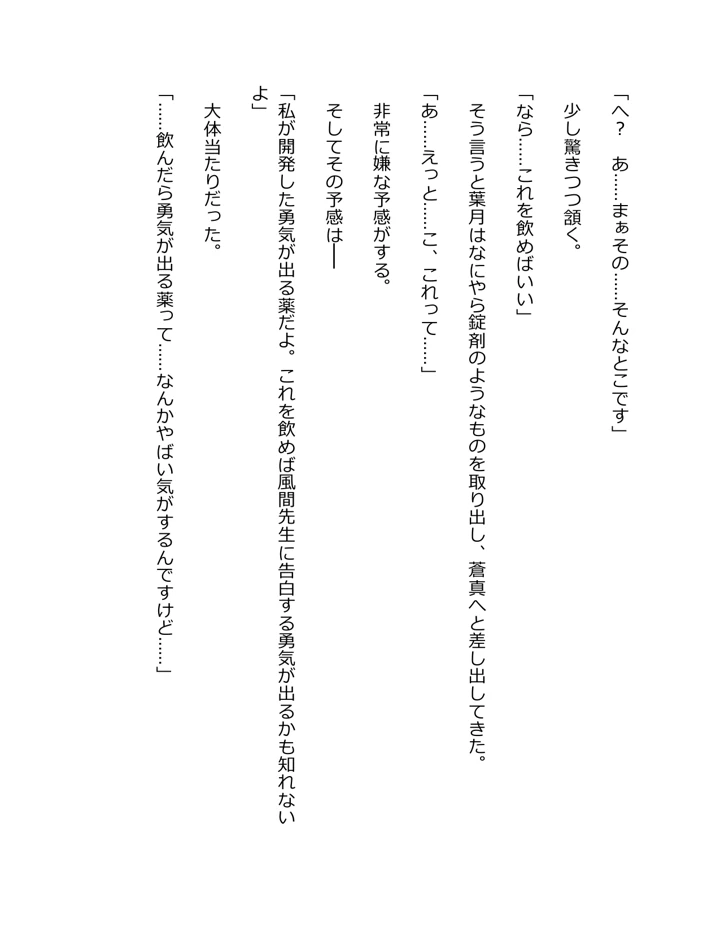 「へ？　あ……まぁその……そんなとこです」
　少し驚きつつ頷く。
「なら……これを飲めばいい」
　そう言うと葉月はなにやら錠剤のようなものを取り出し、蒼真へと差し出してきた。
「あ……えっと……こ、これって……」
　非常に嫌な予感がする。
　そしてその予感は――
「私が開発した勇気が出る薬だよ。これを飲めば風間先生に告白する勇気が出るかも知れない
よ」
　大体当たりだった。
「……飲んだら勇気が出る薬って……なんかやばい気がするんですけど……」